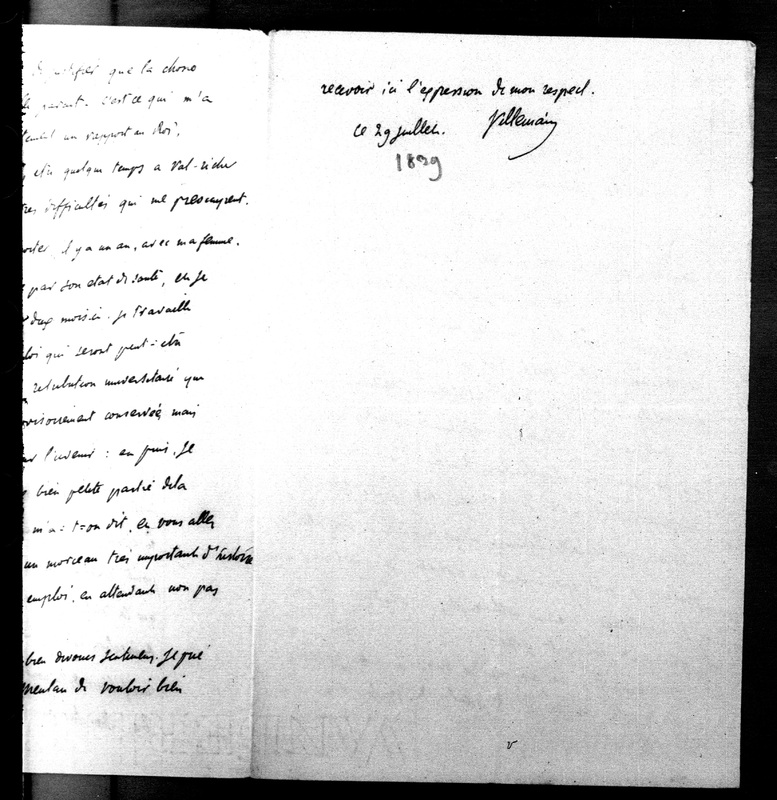 que la chose
c'est ce qui m'a
un rapport au Roi,
quelque temps a Val-richer
difficultés qui me préoccupent.
il y a un an, avec ma femme.
par son état de santé, et je
deux mois ici. je travaille
qui seront peut-être
retribution universitaire que
conservée, mais
l'avenir : et puis, je
bien petite partie de la
m'a-t-on dit, et vous allez
un morceau très important d'histoire
emploi, en attendant non pas
bien dévoués sentimens. je prie
de vouloir bien
recevoir ici l'expression de mon respect.
Ce 29 juillet. Villemain
1839
v